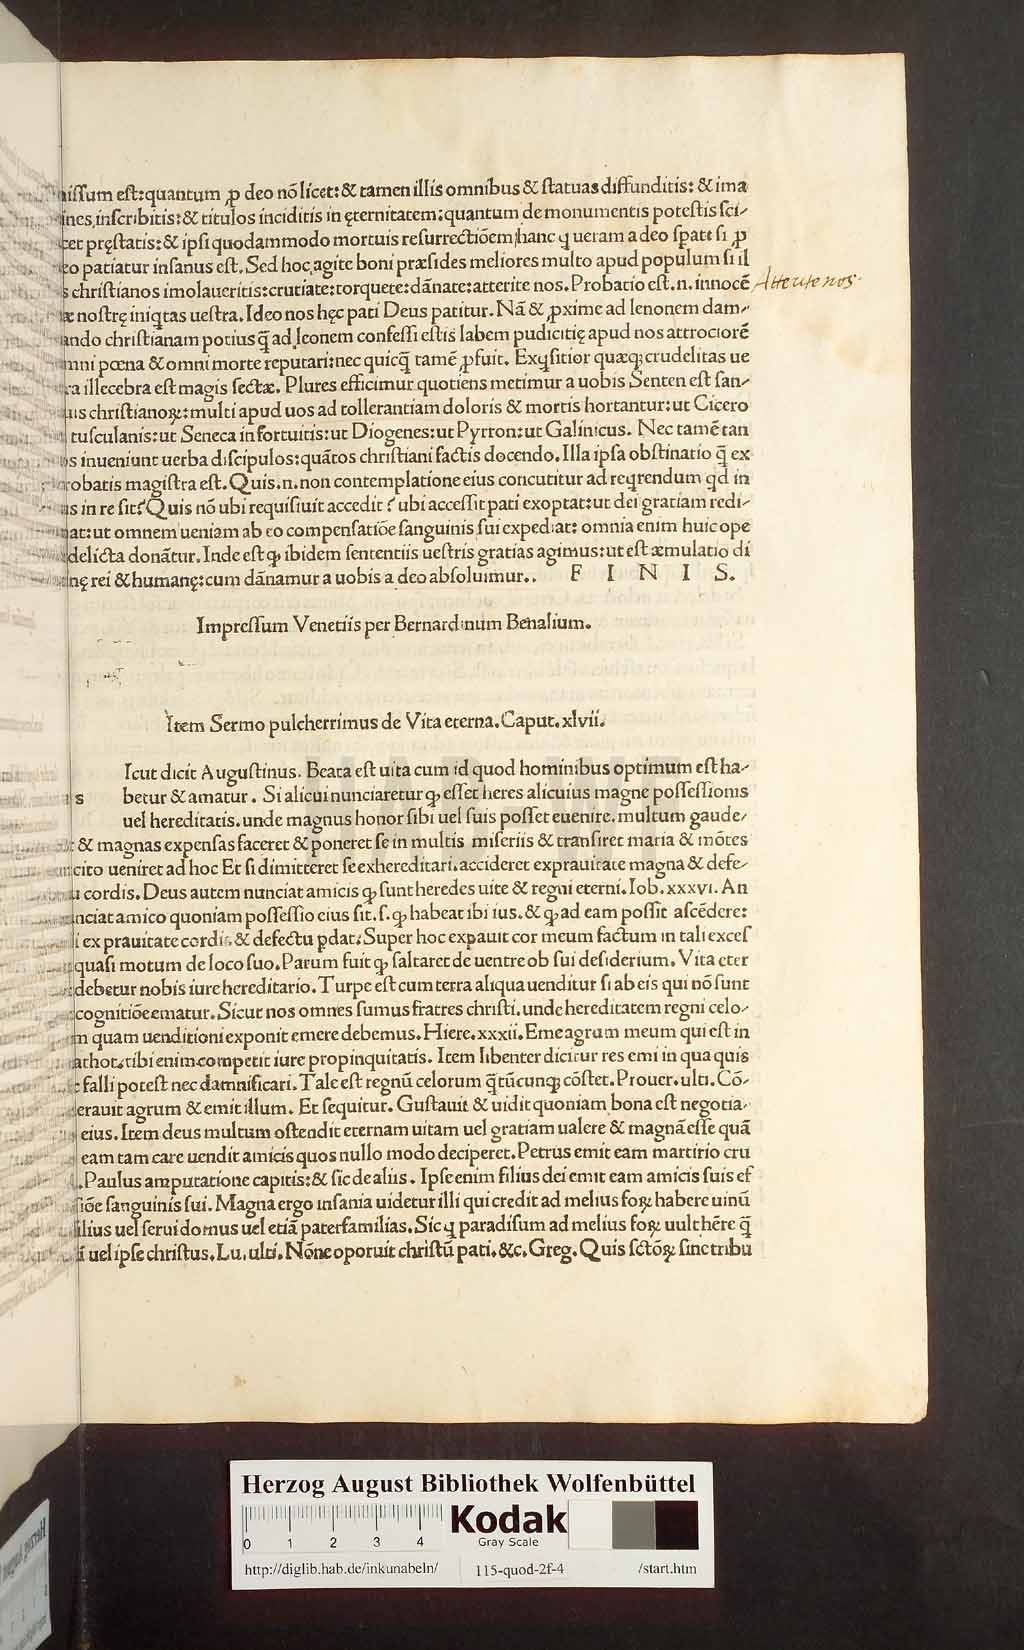 issum est:quantum ꝓ deo nõ licet: & tamen illis omnibus & statuas diffunditis: & ima
ines inscribitis:& titulos inciditis in ęternitatem:quantum de monumentis potestis sci-
cet pręstatis:& ipsi quodammodo mortuis resurrectiõem hanc q ueram a deo spatt si ꝓ
eo patiatur insanus est. Sed hoc agite boni præsides meliores multo apud populum si il
s christianos imolaueritis:cruciate:torquete:dãnate:atterite nos. Probatio est.n.innocẽ
Atterite nos
æ nostrę iniqtas uestra. Ideo nos hęc pati Deus patitur. Nã & ꝓxime ad lenonem dam-
ando christianam potius q̃ ad leonem confessi estis labem pudicitię apud nos attrociorẽ
mni pœna & omni morte reputari:nec quicq̃ tamẽ ꝓfuit. Exqsitior quæq; crudelitas ue
ra illecebra est magis sectæ. Plures efficimur quotiens metimur a uobis Senten est san-
uis christianoꝝ: multi apud uos ad tollerantiam doloris & mortis hortantur:ut Cicero
tusculanis:ut Seneca in fortuitis:ut Diogenes:ut Pyrron:ut Galinicus. Nec tamẽ tan
os inueniunt uerba discipulos:quãtos christiani factis docendo. Illa ipsa obstinatio q̃ ex
robatis magistra est. Quis.n.non contemplatione eius concutitur ad reqrendum qd in
us in re sit? Quis nõ ubi requisiuit accedit? ubi accessit pati exoptat:ut dei gratiam redi-
mat:ut omnem ueniam ab eo compensatiõe sanguinis sui expediat: omnia enim huic ope
delicta donãtur. Inde est ꝙ ibidem sententiis uestris gratias agimus:ut est æmulatio di
inę rei & humanę:cum dãnamur a uobis a deo absoluimur.. F I N I S.
Impressum Venetiis per Bernardinum Benalium.
Item Sermo pulcherrimus de Vita eterna. Caput. xlvii.
Icut dicit Augustinus. Beata est uita cum id quod hominibus optimum est ha-
s betur & amatur. Si alicui nunciaretur ꝙ esset heres alicuius magne possessionis
uel hereditatis. unde magnus honor sibi uel suis posset euenire. multum gaude-
t & magnas expensas faceret & poneret se in multis miseriis & transiret maria & mõtes
cito ueniret ad hoc Et si dimitteret se exhereditari. accideret ex prauitate magna & defe-
u cordis. Deus autem nunciat amicis ꝙ sunt heredes uite & regni eterni. Iob. xxxvi. An
nciat amico quoniam possessio eius sit. s. ꝙ habeat ibi ius. & ꝙ ad eam possit ascẽdere:
i ex prauitate cordis & defectu pdat. Super hoc expauit cor meum factum in tali exces
quasi motum de loco suo. Parum fuit ꝙ saltaret de uentre ob sui desiderium. Vita eter
debetur nobis iure hereditario. Turpe est cum terra aliqua uenditur si ab eis qui nõ sunt
cognitiõe ematur. Sicut nos omnes sumus fratres christi. unde hereditatem regni celo-
m quam uenditioni exponit emere debemus. Hiere. xxxii. Eme agrum meum qui est in
athot. tibi enim competit iure propinquitatis. Item libenter dicitur res emi in qua quis
falli potest nec damnificari. Tale est regnũ celorum q̃tũcunq; cõstet. Prouer. ulti. Cõ-
erauit agrum & emit illum. Et sequitur. Gustauit & uidit quoniam bona est negotia-
eius. Item deus multum ostendit eternam uitam uel gratiam ualere & magnã esse quã
eam tam care uendit amicis quos nullo modo deciperet. Petrus emit eam martirio cru
. Paulus amputatione capitis:& sic de aliis. Ipse enim filius dei emit eam amicis suis ef
siõe sanguinis sui. Magna ergo insania uidetur illi qui credit ad melius foꝝ habere uinũ
ilius uel serui domus uel etiã paterfamilias. Sic q paradisum ad melius foꝝ uult hẽre q̃
ĩ uel ipse christus. Lu. ulti. Nõne oporuit christũ pati. &c. Greg. Quis sctõꝝ sine tribu
HAB-W
Herzog August Bibliothek Wolfenbüttel
0 1 2 3 4
Kodak
Gray Scale
http://diglib.hab.de/inkunabeln/ 115-quod-2f-4 /start.htm